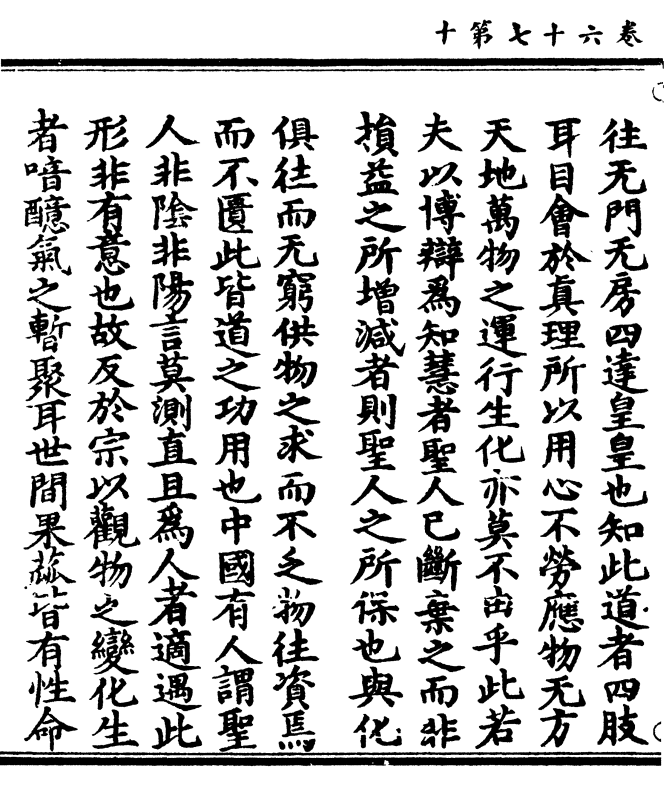 卷六十七第十
往无門无房四達皇皇也知此道者四肢
耳目會於真理所以用心不勞應物无方
天地萬物之運行生化亦莫不由乎此若
夫以博辯爲知慧者聖人已斷棄之而非
損益之所增減者則聖人之所保也與化
俱往而无窮供物之求而不乏物往資焉
而不匱此皆道之功用也中國有人謂聖
人非陰非陽言莫測直且爲人者適遇此
形非有意也故反於宗以觀物之變化生
者喑醷氣之暫聚耳世間果蓏皆有性命